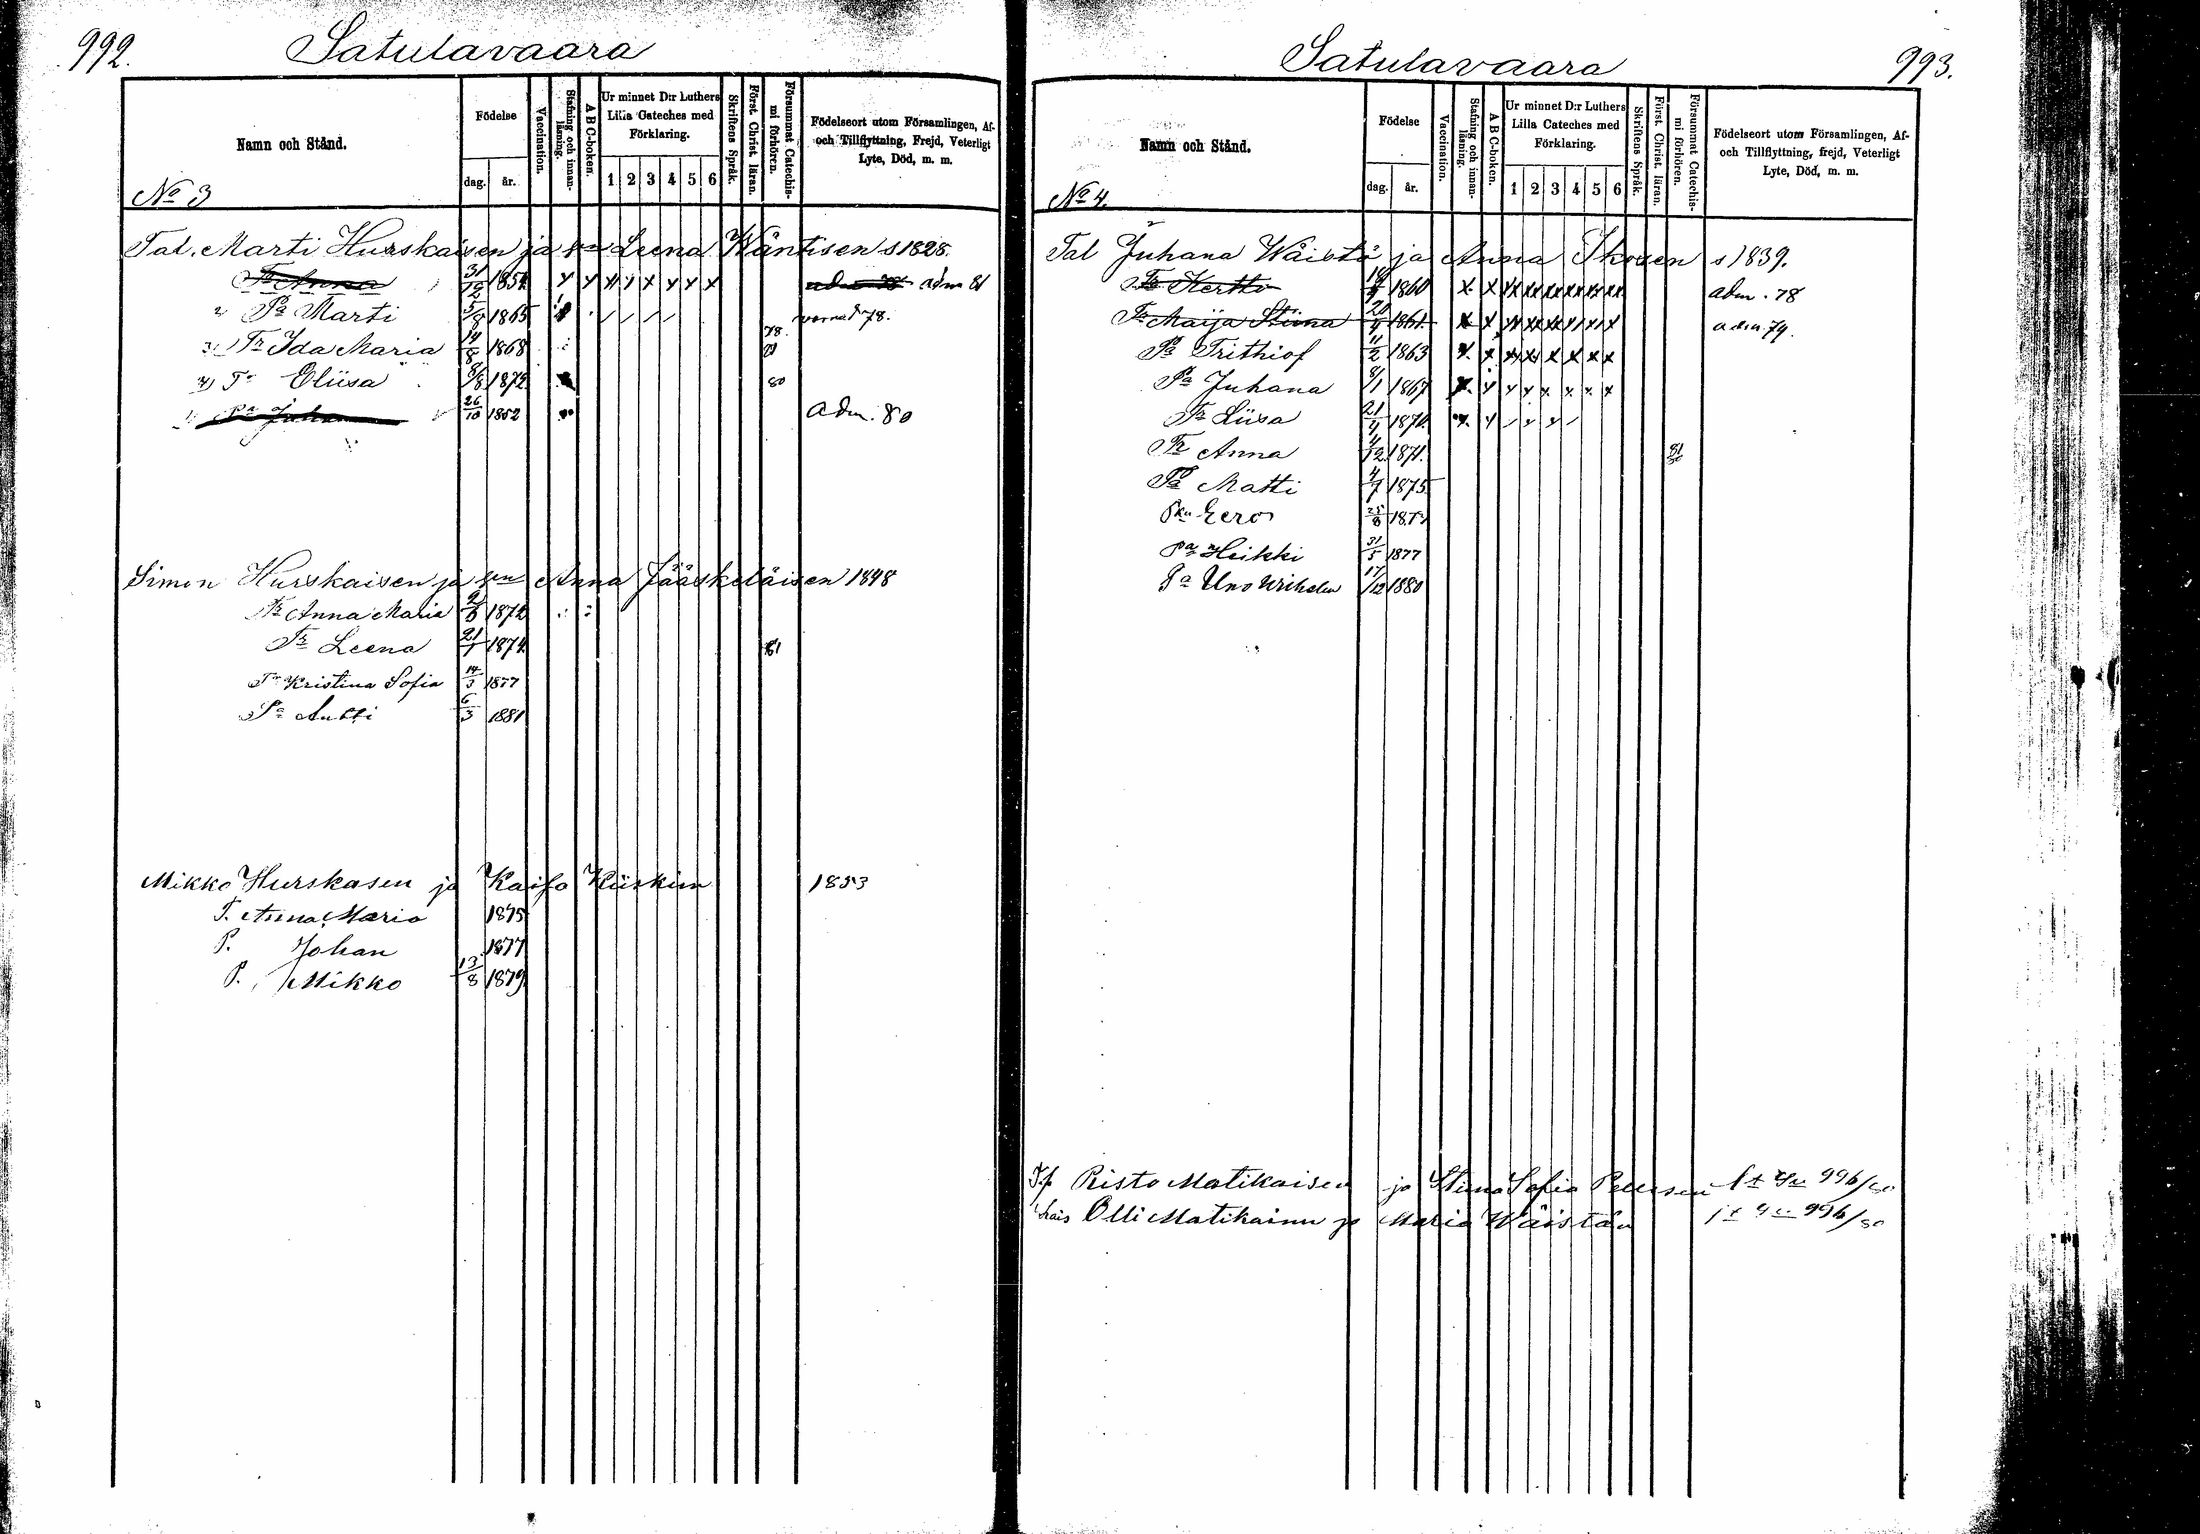 992.
Satulavaara
Namn och Stånd.
Födelse
dag.
år.
Vaccination.
Stafning och innan-
läsning.
A B C-boken.
Ur minnet D:r Luthers
Lilla Cateches med
Förklaring.
1 2 3 4 5 6
Skriftens Språk.
Först. Christ. läran.
Försummat Catechis-
mi förhören.
Födelseort utom Församlingen, Af-
och Tillflyttning, Frejd, Veterligt
Lyte, Död, m. m.
No 3
Tal. Marti Hurskaisen ja Leena Wäntisen s 1828.
Tr Anna 31/12 1854 adm 81
2 Pa Marti 5/8 1865 78.
3) Tr Ida Maria 14/8 1868 78.
4) Tr Eliisa 8/8 1872 80
1 Pa Juha 26/10 1852 adm. 80
Simon Hurskaisen ja sen Anna Jääskeläisen 1848
Tr Anna Maria 1872
Tr Leena 21/1 1874 81
Tr Kristina Sofia 14/3 1877
Pa Antti 6/3 1881
Mikko Hurskasen ja Kaisa Kiiskin 1853
T. Anna Maria 1875
P. Johan 1877
P. Mikko 13/8 1879
Satulavaara
993.
Namn och Stånd.
Födelse
dag.
år.
Vaccination.
Stafning och innan-
läsning.
A B C-boken.
Ur minnet D:r Luthers
Lilla Cateches med
Förklaring.
1 2 3 4 5 6
Skriftens Språk.
Först. Christ. läran.
Försummat Catechis-
mi förhören.
Födelseort utom Församlingen, Af-
och Tillflyttning, frejd, Veterligt
Lyte, Död, m. m.
No 4.
Tal Juhana Wäistö ja Anna Ikosen s 1839.
Tr Kertto 1860 adm. 78
Tr Maija Stiina 1861 adm. 79.
Pa Frithiof 11/2 1863
Pa Juhana 8/1 1867
Tr Liisa 21/4 1870
Tr Anna 1871. 81
Pa Matti 4/7 1875
Pka Eero 25/8 1873
Pa Heikki 31/5 1877
Pa Uno Wilhelm 17/12 1880
Risto Matikaisen ja Stiina Sofia 996/80
Olli Matikainen ja Maria Wäistön 996/80